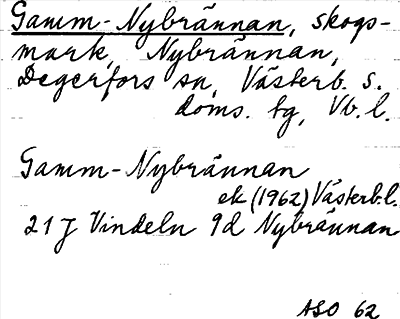 Gamm-Nybrännan, skogs-
mark, Nybrännan,
Degerfors sn, Västerb. s.
doms. tg, Vb. l.
Gamm-Nybrännan
ek (1962) Västerb.l.
21 J Vindeln 9d Nybrännan
ASO 62